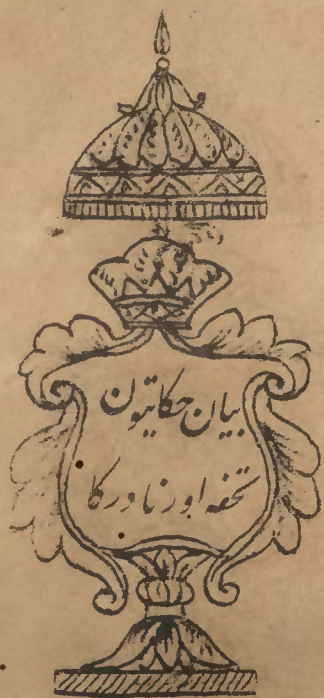 بیان حکایتون
تحفه اور نادر کا